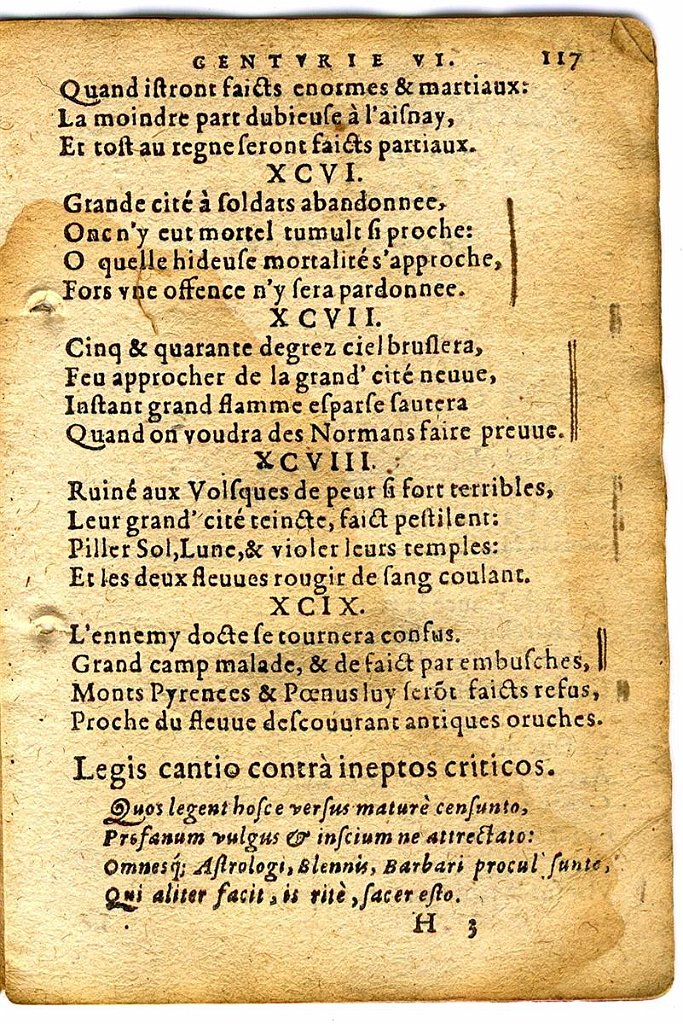 CENTVRIE VI. 117
Quand iſtront faicts enormes & martiaux:
La moindre part dubieuſe à l'aiſnay,
Et toſt au regne ſeront faicts partiaux.
XCVI.
Grande cité à ſoldats abandonnee,
Onc n'y eut mortel tumult ſi proche:
O quelle hideuſe mortalité s'approche,
Fors vne offence n'y ſera pardonnee.
XCVII.
Cinq & quarante degrez ciel bruſlera,
Feu approcher de la grand' cité neuue,
Inſtant grand flamme eſparſe ſautera
Quand on voudra des Normans faire preuue.
XCVIII.
Ruiné aux Volſques de peur ſi fort terribles,
Leur grand' cité teincte, faict peſtilent:
Piller Sol, Lune, & violer leurs temples:
Et les deux fleuues rougir de ſang coulant.
XCIX.
L'ennemy docte ſe tournera confus.
Grand camp malade, & de faict par embuſches,
Monts Pyrenees & Pœnus luy ſerõt faicts refus,
Proche du fleuue deſcouurant antiques oruches.
Legis cantio contrà ineptos criticos.
Quos legent hoſce verſus maturè cenſunto,
Profanum vulgus & inſcium ne attrectato:
Omnesq́; Aſtrologi, Blennis, Barbari procul ſunto,
Qui aliter facit, is ritè, ſacer eſto.
H 3